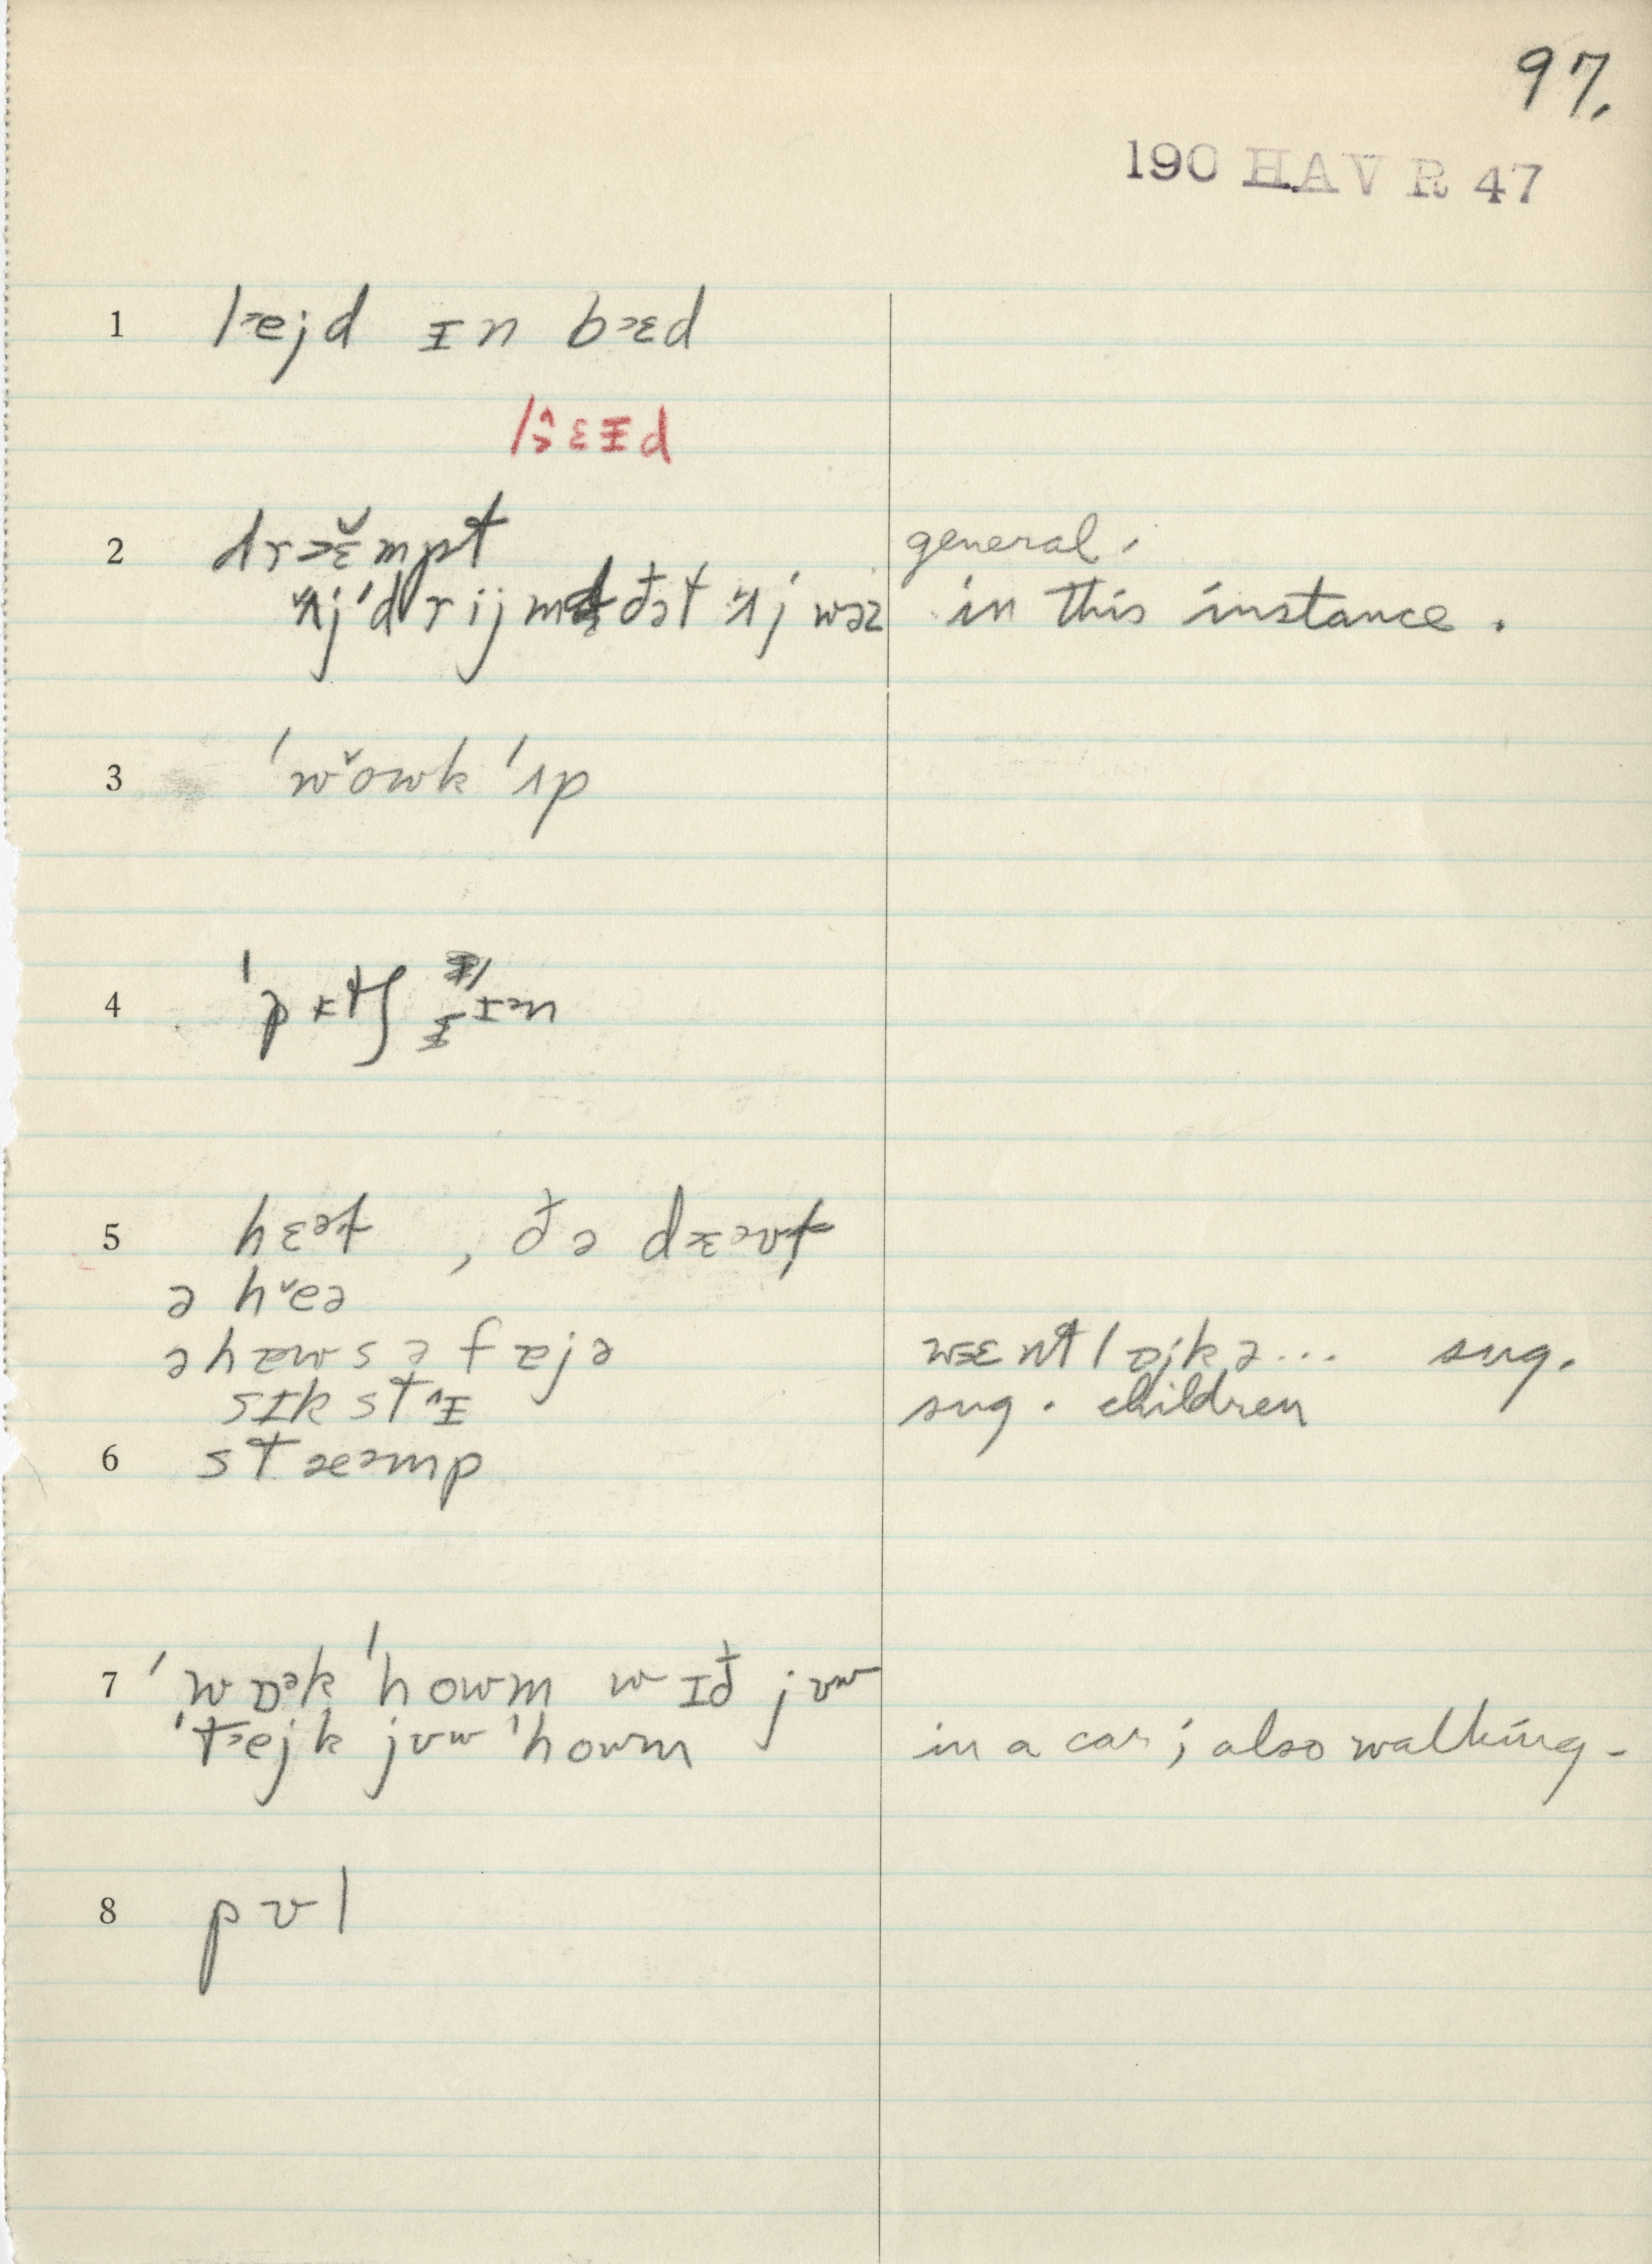 97.
190 HAV R 47
1 lɜejd ɪn bɜɛd
2 drɜɛ̌mpt general.
ʌj'drijm đət ʌj wəz in this instance.
3 'wǒwk 'ʌp
4 'pɪtʃ ɪən
5 hɛət , đə dɛəvt
ə hěə
ə hæws ə fæjə wɜɛnt lɒjk ə... sug.
sɪkstɪ̌ sug. children
6 stæəmp
7 'wɒək 'howm wɪđ jʊw
'tɜejk jʊw 'howm in a car; also walking-
8 pʊl